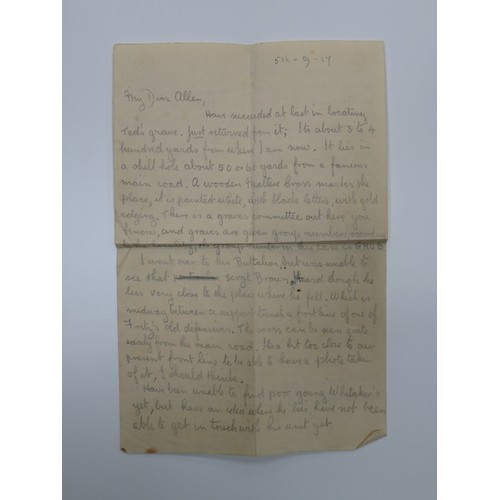 5th - 9 - 17
My Dear Allen,
Have succeeded at last in locating
Ted's grave. Just returned from it; Its about 3 to 4
hundred yards from where I am now. It lies in
a shell hole about 50 or 60 yards from a famous
main road. A wooden Maltese Cross marks the
place, it is painted white, with black letters, with gold
edging. There is a graves committee out here you
know, and graves are given group numbers
group number in this case is
I went over to his Battalion, but was unable to
see that Sergt Brown, Heard though, he
lies very close to the place where he fell. Which is
midway between a support trench & front line of one of
Fritz's old defences. The cross can be seen quite
easily from the main road. Its a bit too close to our
present front line to be able to have a photo taken
of it, I should think.
Have been unable to find poor young Whitaker's
yet, but have an idea where he lies, have not been
able to get in touch with his unit yet.